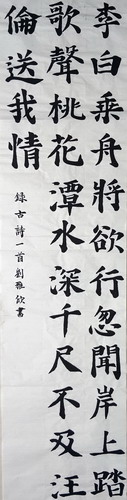 李白乘舟將欲行忽聞岸上踏
歌聲桃花潭水深千尺不及汪
倫送我情
錄古詩一首劉雅欽書